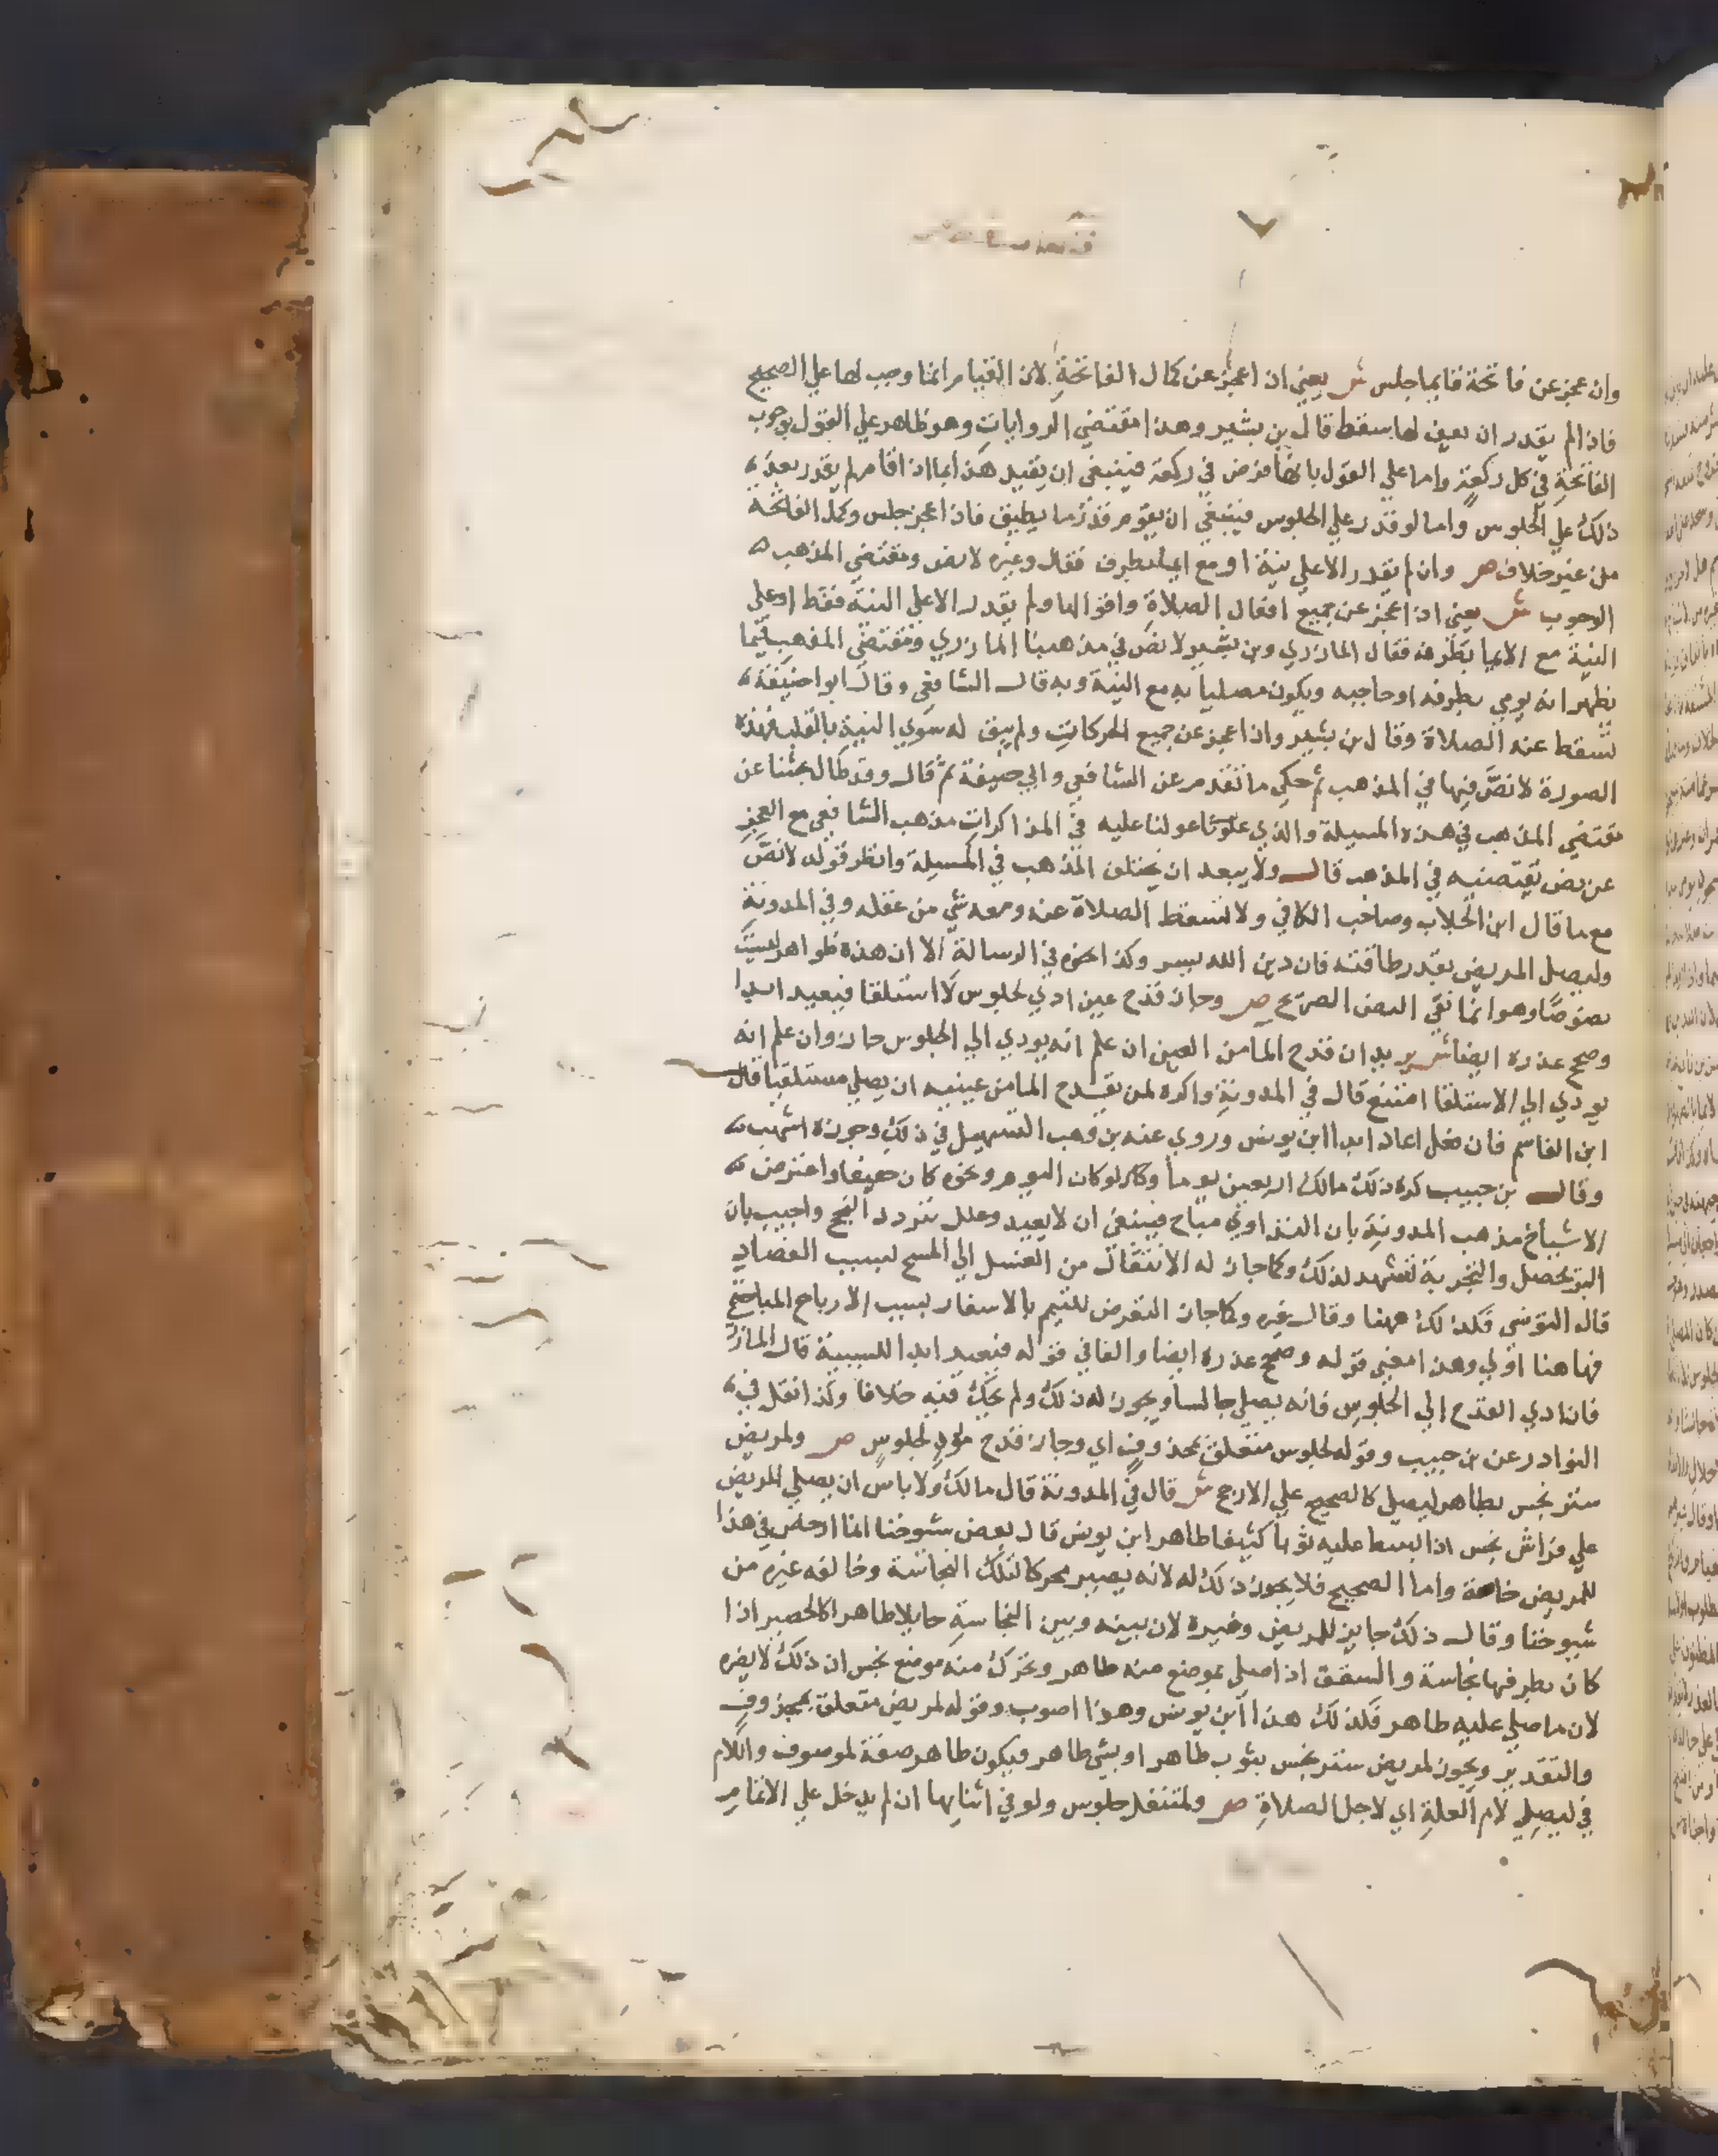 وان عجز عن فاتحة قايما جلس ش يعني ان اعجز عن كمال الفاتحة لان القيام انما وجب لها علي الصحيح
فاذا لم يقدر ان يعين لها سقط قال بن بشير وهذا مقتضي الروايات وهو ظاهر علي القول بوجوب
الفاتحة في كل ركعة واما علي القول بانها فرض في ركعة فينبغي ان يقيد هذا بما اذا قام لم يقدر بعد
ذلك علي الجلوس واما لو قدر علي الجلوس فينبغي ان يقوم قدر ما يطيق فاذا عجز جلس وكمل الفاتحة
من غير خلاف ص وان لم يقدر الا علي نية او مع ايما بطرف فقال وغيره لا نص ومقتضي المذهب
الوجوب ش يعني اذا عجز عن جميع افعال الصلاة واقوالها ولم يقدر الا علي النية فقط او علي
النية مع الايما بطرفه فقال المازري وبن بشير لا نص في مذهبنا المازري ومقتضي المذهب فيما
يظهر انه يومي بطرفه او حاجبه ويكون مصليا به مع النية وبه قال الشافعي وقال ابو احنيفة
تسقط عنه الصلاة وقال بن بشير واذا عجز عن جميع الحركات ولم يبق له سوي النية بالقلب فهذه
الصورة لا نص فيها في المذهب ثم حكي ما تقدم عن الشافعي وابي حنيفة ثم قال وقد طال بحثنا عن
مقتضي المذهب في هذه المسيلة والذي عولنا عليه في المذاكرات مذهب الشافعي مع العجز
عن نص يقتضيه في المذهب قال ولا يبعد ان يختلف المذهب في المسيلة وانظر قوله لا نص
مع ما قال ابن الجلاب وصاحب الكافي ولا تسقط الصلاة عنه ومعه شي من عقله وفي المدونة
وليصل المريض بقدر طاقته فان دين الله يسر وكذا نحوه في الرسالة الا ان هذه ظواهر ليست
نصوصا وهو انما نفي النص الصريح ص وجاز قدح عين ادي لجلوس لا استلقا فيعيد ابدا
وصح عذره ايضا ش يريد ان قدح الما من العين ان علم انه يودي الي الجلوس جاز وان علم انه
يودي الي الاستلقا امتنع قال في المدونة واكره لمن يقدح الما من عينيه ان يصلي مستلقيا قال
ابن القاسم فان فعل اعاد ابدا ابن يونس وروي عنه بن وهب التسهيل في ذلك وجوزه اشهب
وقال بن حبيب كره ذلك مالك اربعين يوما وكان لو كان اليوم ونحوه كان خفيفا واعترض
الاشياخ مذهب المدونة بان التداوي مباح فينبغي ان لا يعيد وعلل بتردد النجح واجيب بان
البرء يحصل والتجربة تشهد لذلك وكما جاز له الانتقال من الغسل الي المسح لسبب الفصاد
قاله التونسي فكذلك ههنا وقال غيره وكما جاز التعرض للتيمم بالاسفار لسبب الارباح المباحة
فها هنا اولي وهذا معني قوله وصح عذره ايضا والفا في قوله فيعيد ابدا للسببية قال المازري
فان ادي القدح الي الجلوس فانه يصلي جالسا ويجوز له ذلك ولم يحك فيه خلافا وكذا نقل في
النوادر عن بن حبيب وقوله لجلوس متعلق بمحذوف اي وجاز قدح مود لجلوس ص ولمريض
ستر نجس بطاهر ليصلي كالصحيح علي الارجح ش قال في المدونة قال مالك ولا باس ان يصلي المريض
علي فراش نجس اذا بسط عليه ثوبا كثيفا طاهر ابن يونس قال بعض شيوخنا انما ارخص في هذا
للمريض خاصة واما الصحيح فلا يجوز ذلك له لانه يصير محركا لتلك النجاسة وخالفه غيره من
شيوخنا وقال ذلك جايز للمريض وغيره لان بينه وبين النجاسة حايلا طاهرا كالحصير اذا
كان بطرفها نجاسة والسقف اذا صلي بموضع منه طاهر وتحرك منه موضع نجس ان ذلك لا يضره
لان ما صلي عليه طاهر فكذلك هذا ابن يونس وهذا اصوب وقوله لمريض متعلق بمحذوف
والتقدير ويجوز لمريض ستر نجس بثوب طاهر او بشي طاهر فيكون طاهر صفة لموصوف واللام
في ليصلي لام العلة اي لاجل الصلاة ص ولمتنفل جلوس ولو في اثنايها ان لم يدخل علي الاتمام